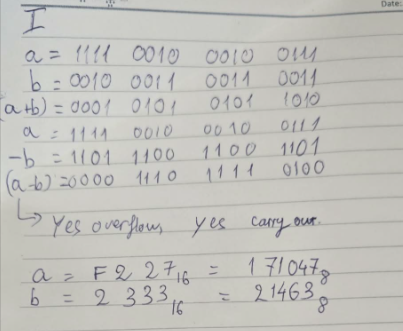 Date:
I
a = 1111 0010 0010 0111
b = 0010 0011 0011 0011
(a+b) = 0001 0101 0101 1010
a = 1111 0010 0010 0111
-b = 1101 1100 1100 1101
(a-b) = 0000 1110 1111 0100
↳ Yes overflow, yes carry out.
a = F2 27₁₆ = 171047₈
b = 2 333₁₆ = 21463₈